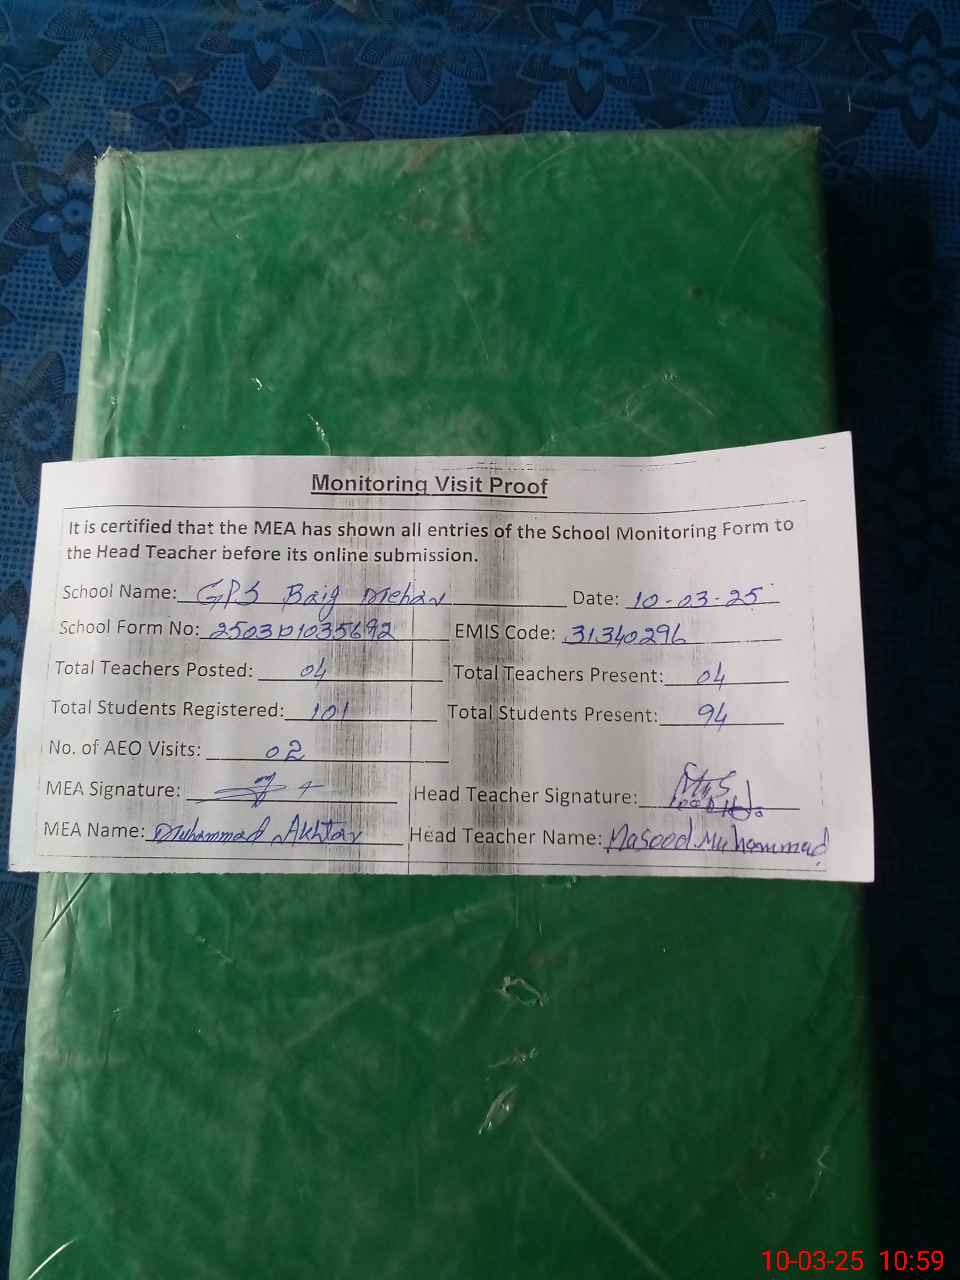 Monitoring Visit Proof
It is certified that the MEA has shown all entries of the School Monitoring Form to
the Head Teacher before its online submission.
School Name: GPS Baig Mehar Date: 10-03-25
School Form No: 2503 EMIS Code: 31340296
Total Teachers Posted: 04 Total Teachers Present: 04
Total Students Registered: 101 Total Students Present: 94
No. of AEO Visits: 02
MEA Signature: Head Teacher Signature:
MEA Name: Muhammad Akhtar Head Teacher Name: Masood Muhammad
10-03-25 10:59